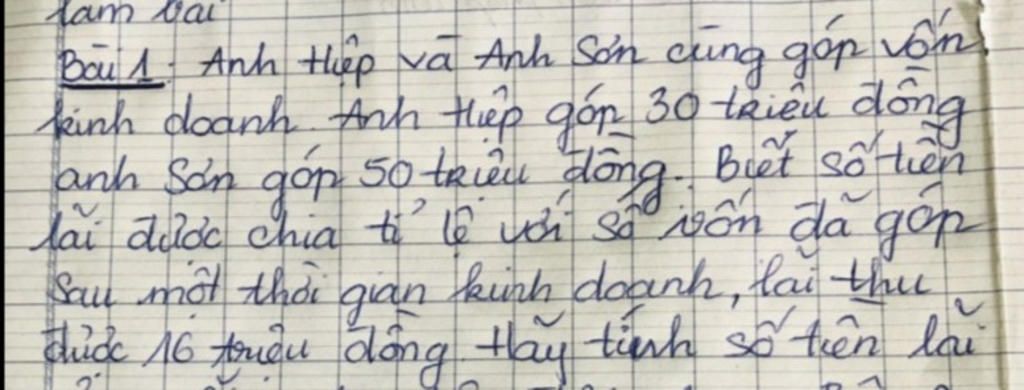 làm bài
Bài 1: Anh Hiệp và Anh Sơn cùng góp vốn
kinh doanh. Anh Hiệp góp 30 triệu đồng
anh Sơn góp 50 triệu đồng. Biết số tiền
lãi được chia tỉ lệ với số vốn đã góp
Sau một thời gian kinh doanh, lãi thu
được 16 triệu đồng. Hãy tính số tiền lãi